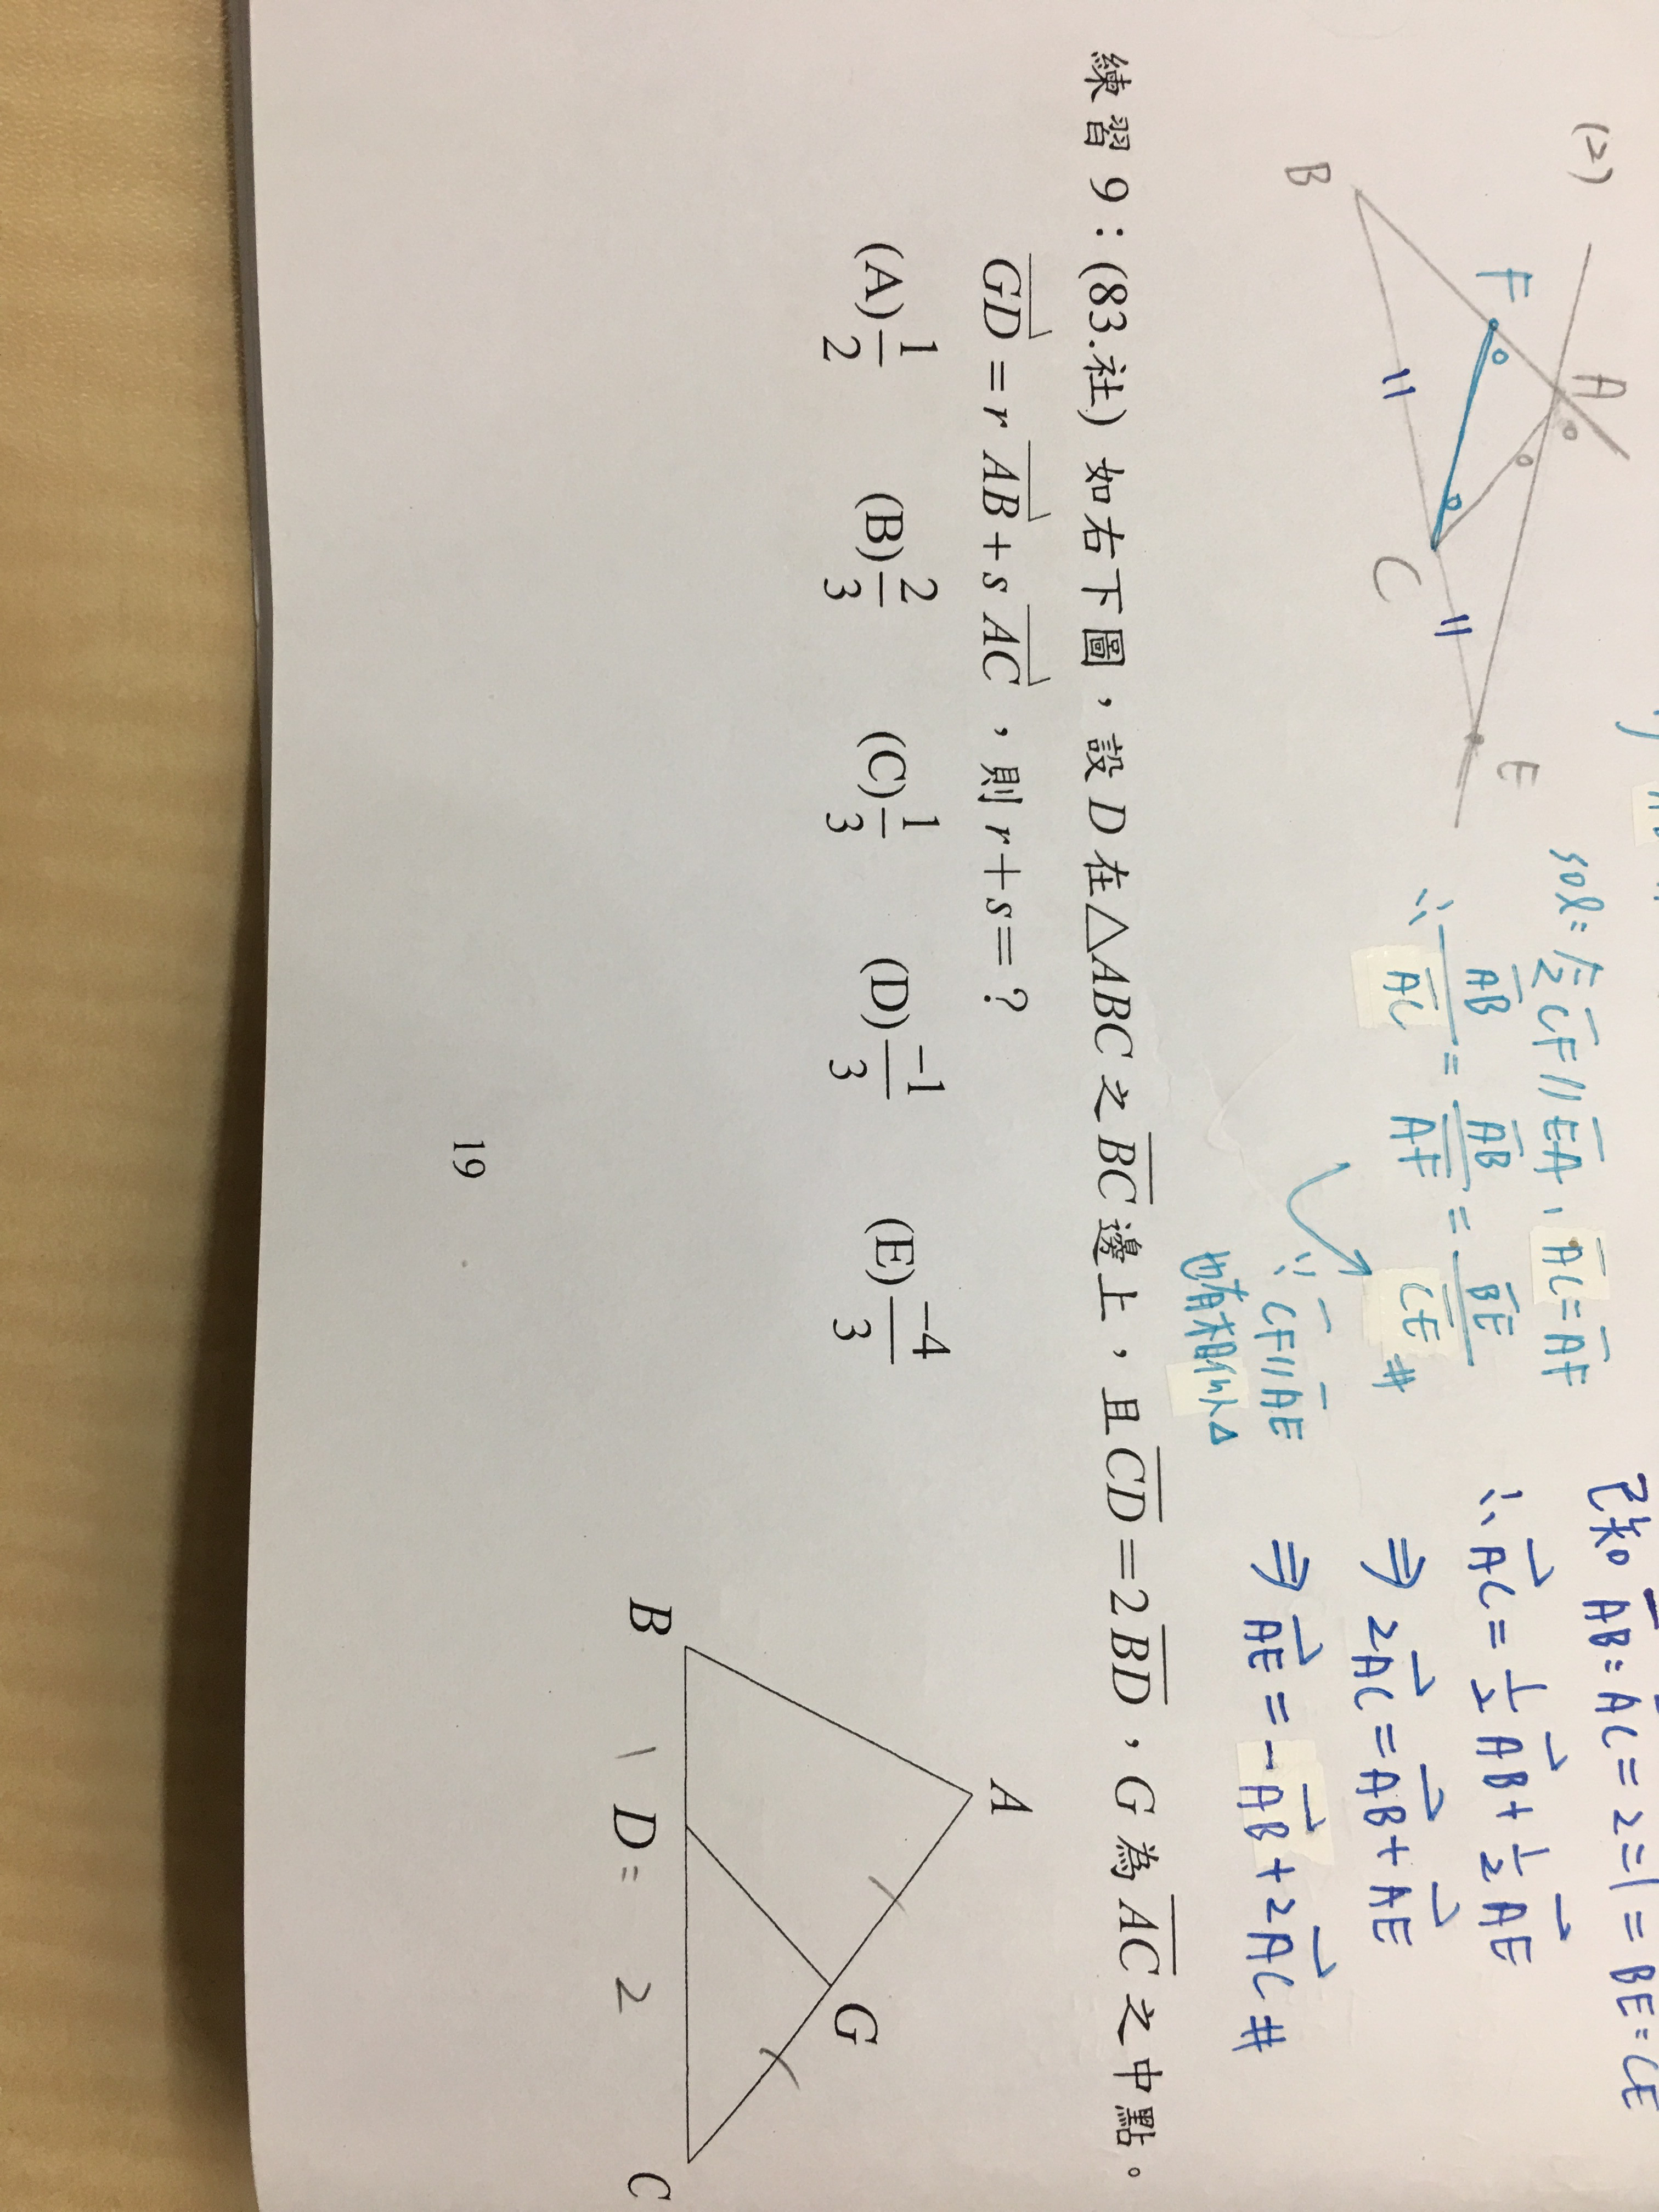 (2)
B
F
A
C
E
sol: 作 CF // EA, AC = AF
∴ AB/AC = AB/AF = BE/CE #
∵ CF // AE
也有相似△
已知 AB:AC = 2:1 = BE:CE
∴ AC = 1/2 AB + 1/2 AE
⇒ 2AC = AB + AE
⇒ AE = -AB + 2AC #
練習 9:(83.社) 如右下圖,設 D 在△ABC 之 BC 邊上,且 CD = 2BD,G 為 AC 之中點。
GD = r AB + s AC,則 r+s=?
(A) 1/2 (B) 2/3 (C) 1/3 (D) -1/3 (E) -4/3
A
G
B 1 D = 2 C
19